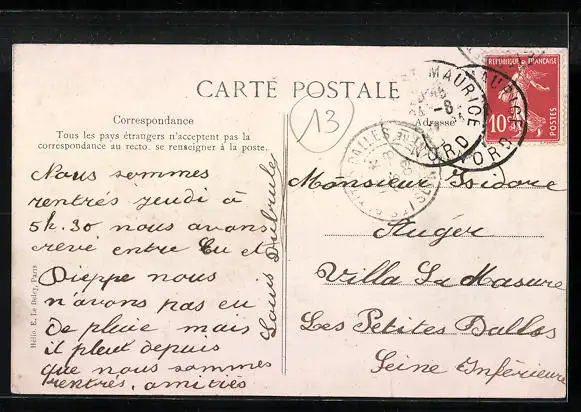 CARTE POSTALE
Correspondance
Tous les pays étrangers n'acceptent pas la
correspondance au recto. se renseigner à la poste.
Adresse
13
REPUBLIQUE FRANÇAISE
10
POSTES
MAURICE
NORD
Nous sommes
rentrés jeudi à
5h.30 nous avons
crevé entre Eu et
Dieppe nous
n'avons pas eu
de pluie mais
il pleut depuis
que nous sommes
rentrés, amitiés
Louis Dubrule
Monsieur Isidore
Augér
Villa La Masure
Les Petites Dalles
Seine Inférieure
Hélio. E. Le Deley, Paris